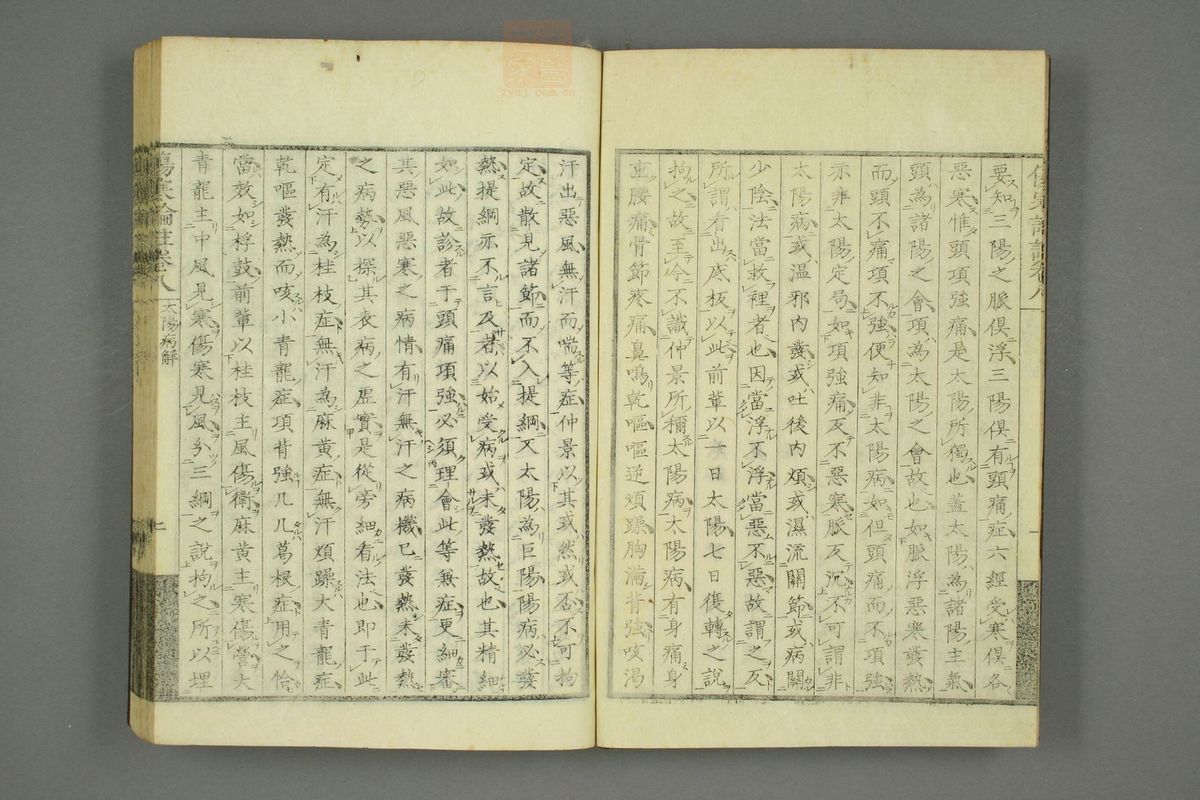 要知三陽之脈俱浮三陽俱有頭痛症六經受寒俱各
惡寒惟頭項強痛是太陽所獨也蓋太陽為諸陽主氣
頭為諸陽之會項為太陽之會故也如脈浮惡寒發熱
而頭不痛項不強便知非太陽病如但頭痛而不項強
亦非太陽定局如項強痛反不惡寒脈反沉不可謂非
太陽病或溫邪內發或吐後內煩或濕流關節或病關
少陰法當救裡者也因當浮不浮當惡不惡故謂之反
所謂看出底板以此前輩以一日太陽七日復轉之說
拘之故至今不識仲景所稱太陽病太陽病有身痛身
重腰痛骨節疼痛鼻鳴乾嘔嘔逆煩躁胸滿背強咳渴
汗出惡風無汗而喘等症仲景以其或然或否不可拘
定故散見諸節而不入提綱又太陽為巨陽陽病必發
熱提綱亦不言及者以始受病或未發熱故也其精細
如此故診者于頭痛項強必須理會此等兼症更細審
其惡風惡寒之病情有汗無汗之病機已發熱未發熱
之病勢以探其表病之虛實是從旁細看法也即于此
定有汗為桂枝症無汗為麻黃症無汗煩躁大青龍症
乾嘔發熱而咳小青龍症項背強几几葛根症用之恰
當效如桴鼓前輩以桂枝主風傷衛麻黃主寒傷營大
青龍主中風見寒傷寒見風分三綱之說拘之所以埋
傷寒論註卷八
太陽病解
zysj.com.cn